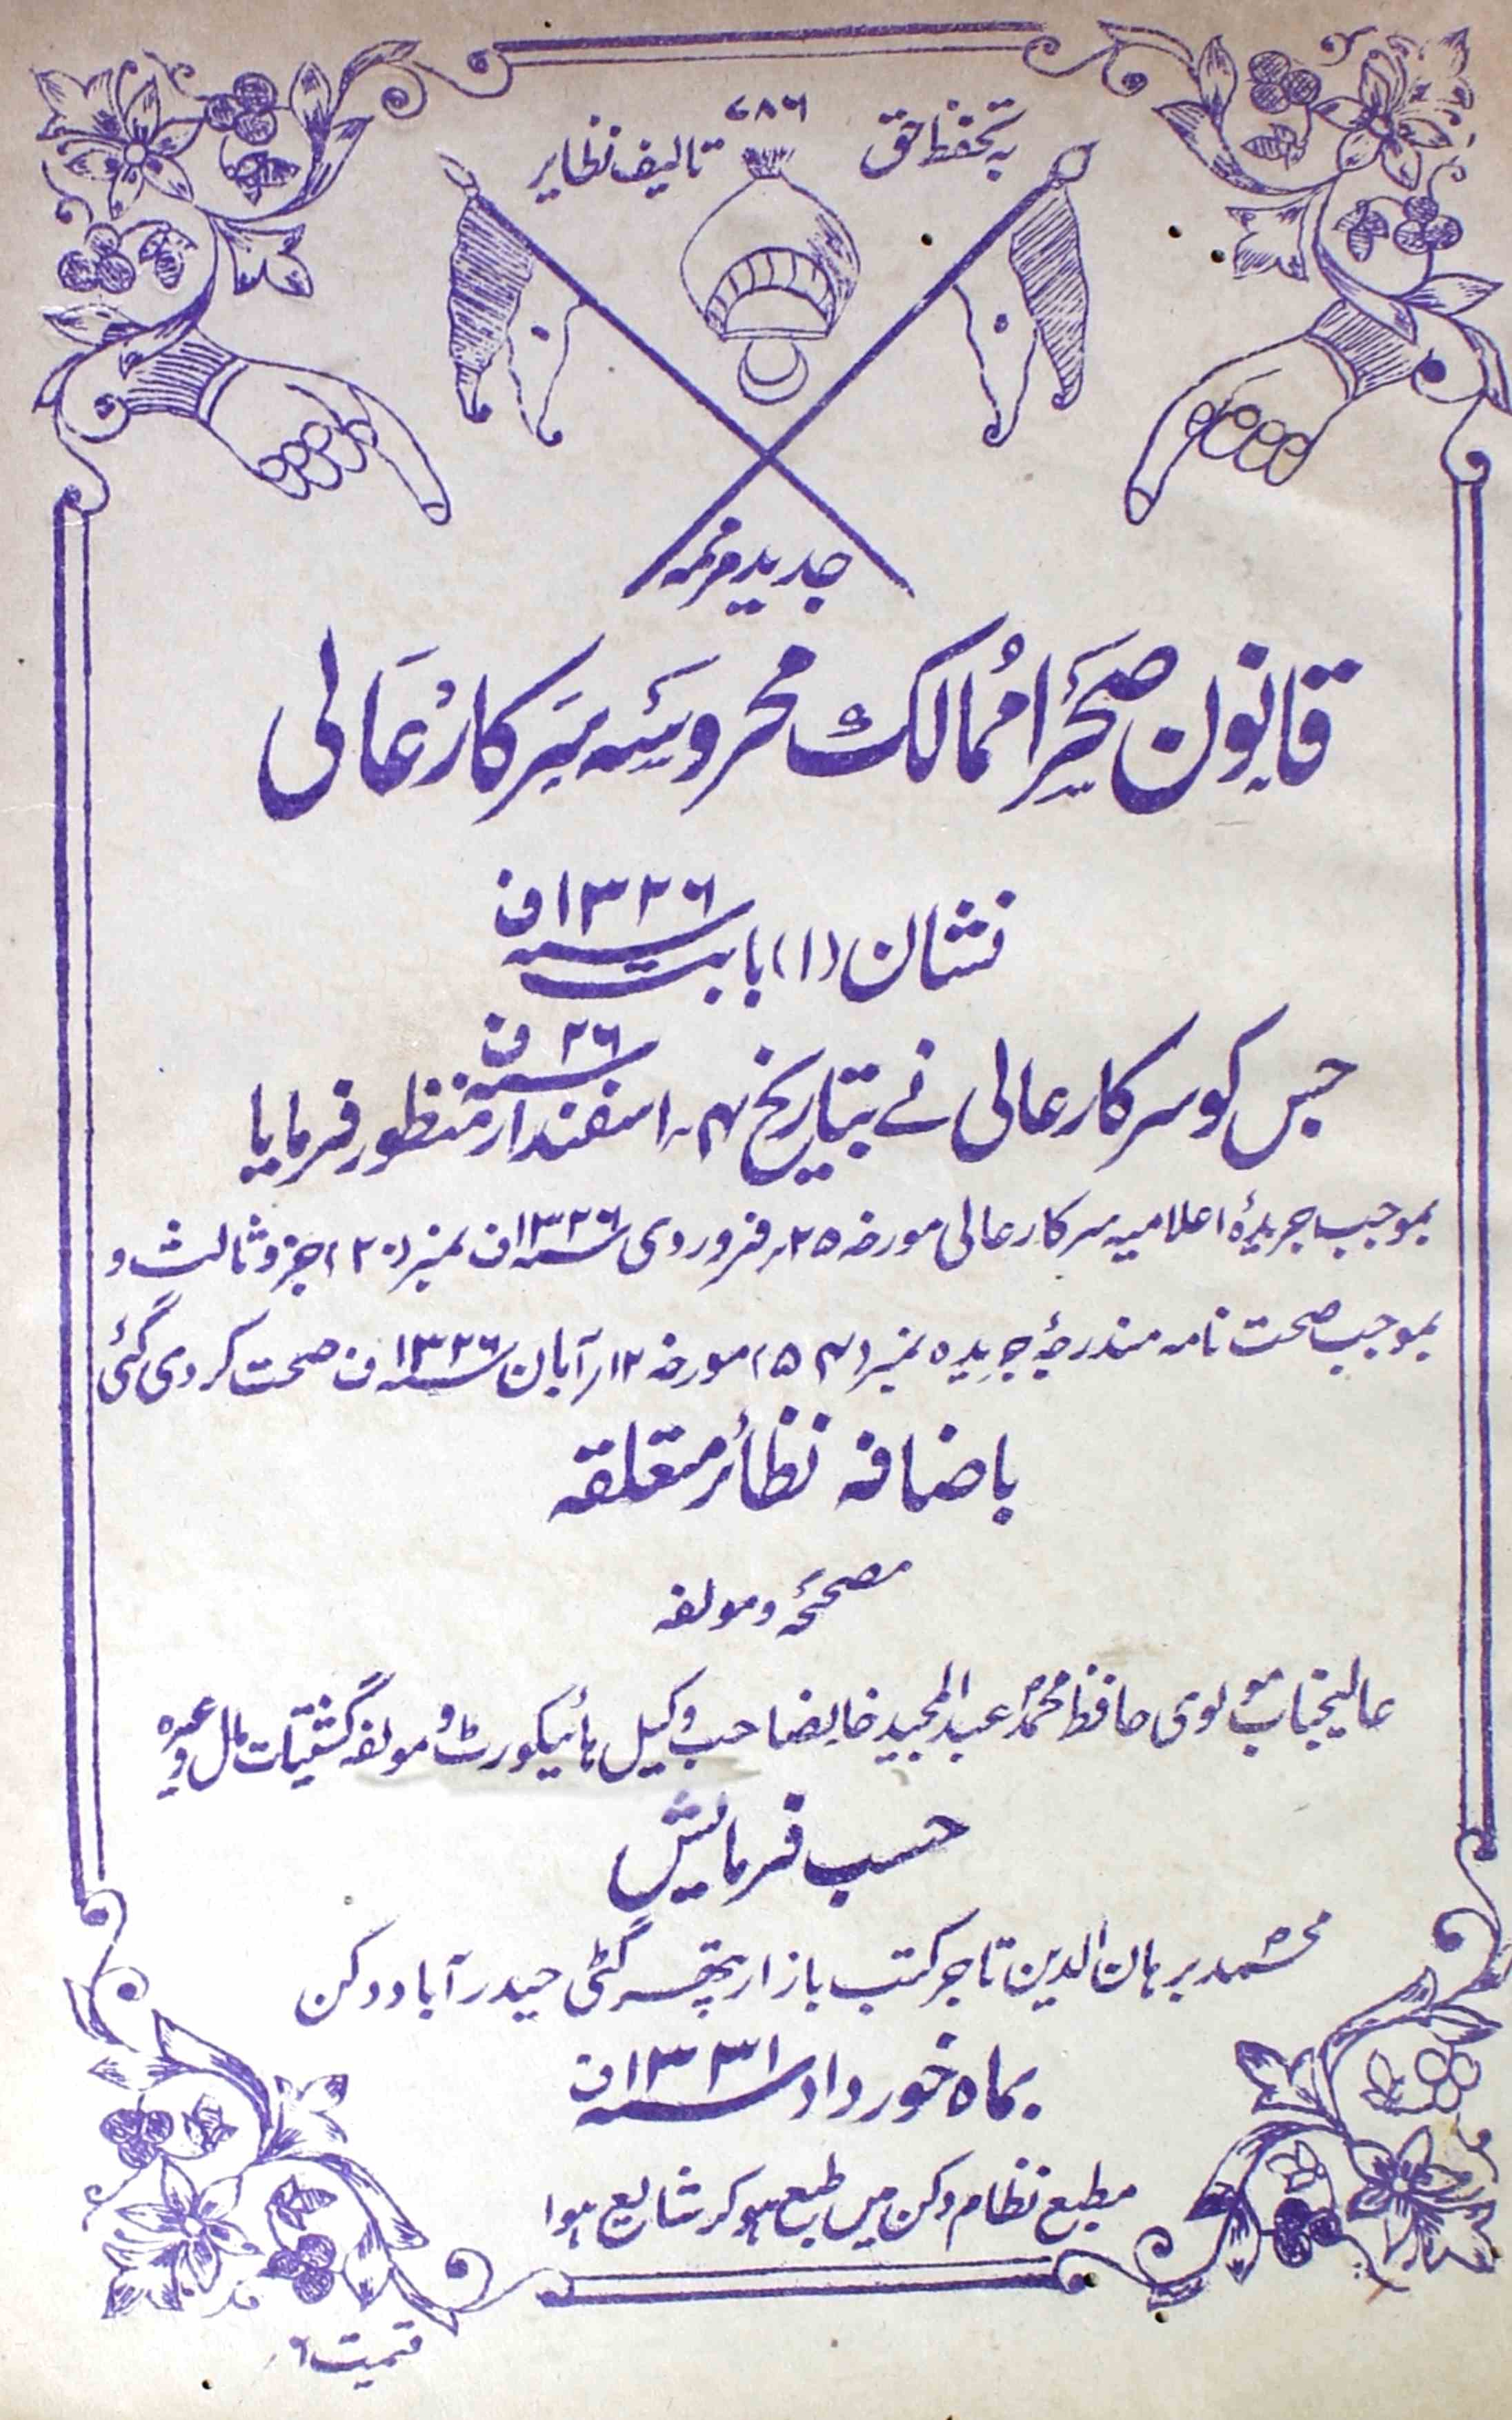 ۷۸۶
بہ تحفظ حق تالیف نظایر
جدید مرممہ
قانون صحرا ممالک محروسہ سرکار عالی
نشان (۱) بابتہ ۱۳۲۶ سنہ ف
جس کو سرکار عالی نے بتاریخ ۴ ۔ اسفندار ۲۶ سنہ ف منظور فرمایا
بموجب جریدۂ اعلامیہ سرکار عالی مورخہ ۲۵ ر فروردی ۱۳۲۶ سنہ ف نمبر (۲۰) جزو ثالث و
بموجب صحت نامہ مندرجۂ جریدہ نمبر (۵۴) مورخہ ۱۲ ر آبان ۱۳۲۶ سنہ ف صحت کر دی گئی
باضافہ نظائر متعلقہ
مصححہ و مولفہ
عالیجناب مولوی حافظ محمد عبد المجید خانصاحب وکیل ہائیکورٹ و مولفہ گشتیات مال وغیرہ
حسب فرمایش
محمد برہان الدین تاجر کتب بازار گٹی حیدرآباد دکن
بماہ خورداد ۱۳۳۱ سنہ ف
مطبع نظام دکن میں طبع ہو کر شایع ہوا
قیمت